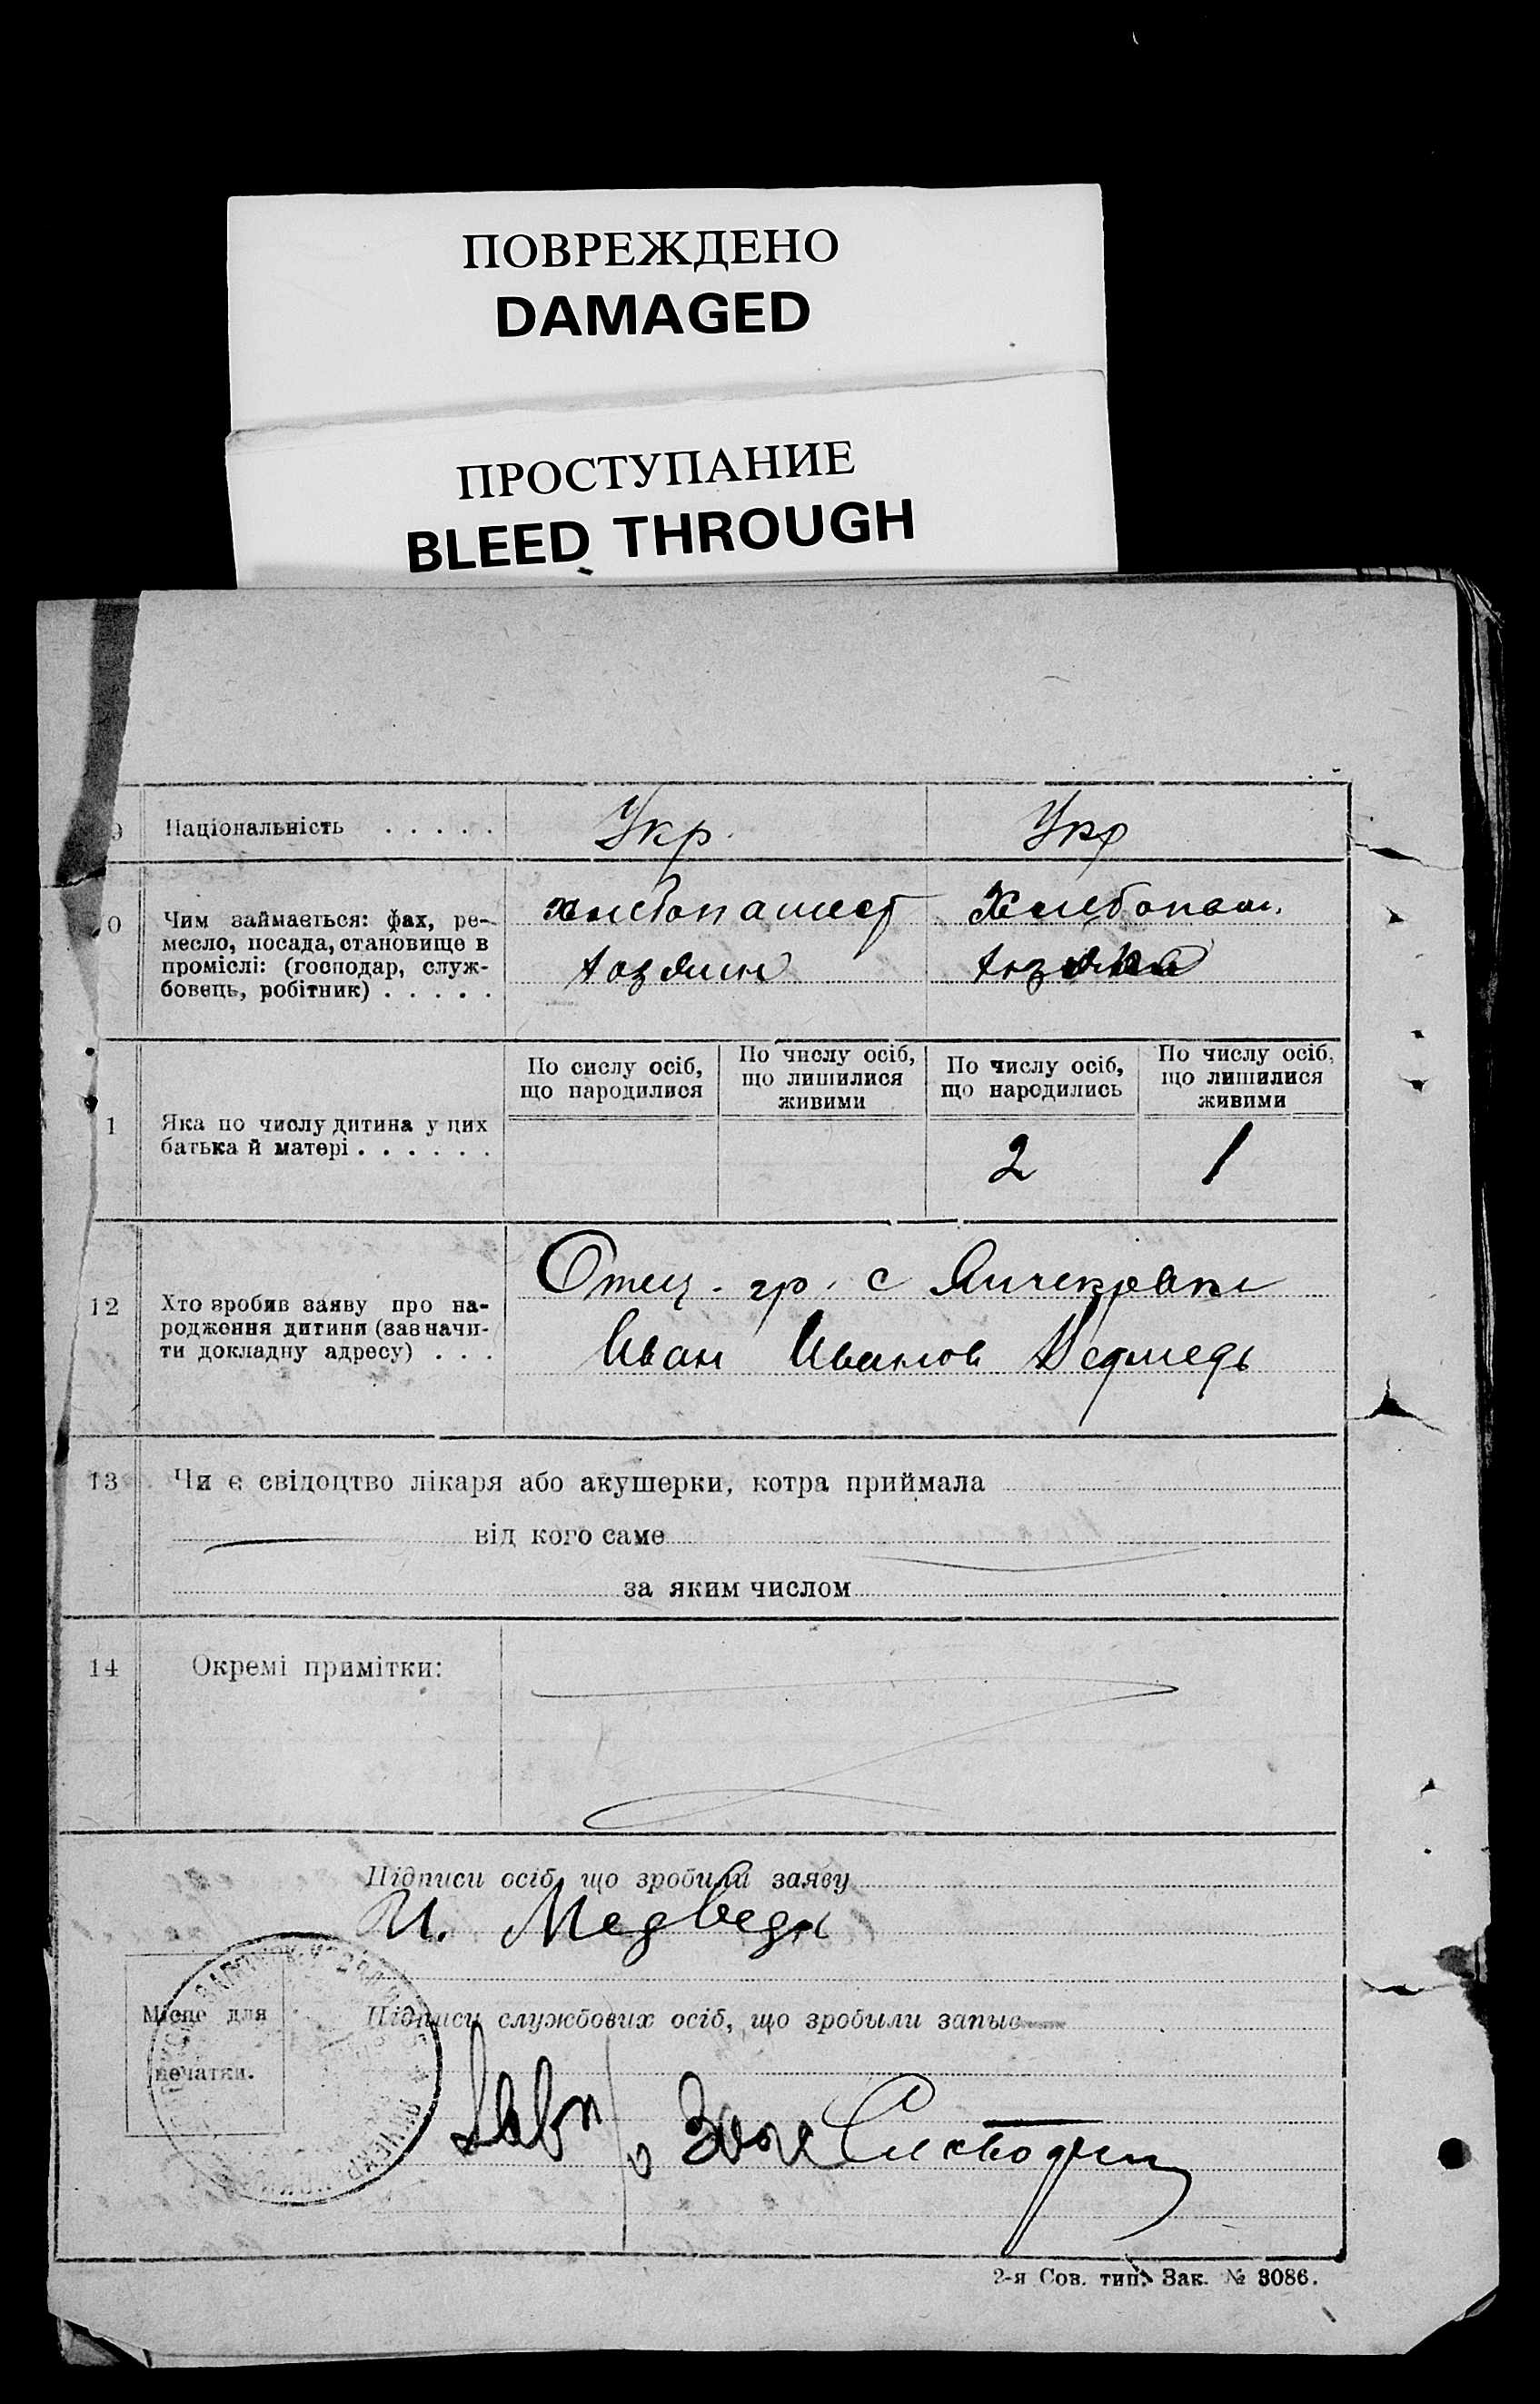 ПОВРЕЖДЕНО
DAMAGED
ПРОСТУПАНИЕ
BLEED THROUGH
9 Національність . . . . . Укр. Укр
0 Чим займається: фах, ре-
месло, посада, становище в
проміслі: (господар, служ-
бовець, робітник) . . . . .
хлебопашест Хлебопаш.
хозяин
По сислу осіб,
що народилися
По числу осіб,
що лишилися
живими
По числу осіб,
що народились
По числу осіб,
що лишилися
живими
1 Яка по числу дитина у цих
батька й матері . . . . . .
2 1
12 Хто зробив заяву про на-
родження дитини (зазначи-
ти докладну адресу) . . .
Отец. гр. с Янчекракы
Иван Иванов Ведмедь
13 Чи є свідоцтво лікаря або акушерки, котра приймала
від кого саме
за яким числом
14 Окремі примітки:
Підписи осіб, що зробили заяву
И. Медведь
Місце для
печатки.
Підписи службових осіб, що зробыли запыс
2-я Сов. тип. Зак. № 3086.